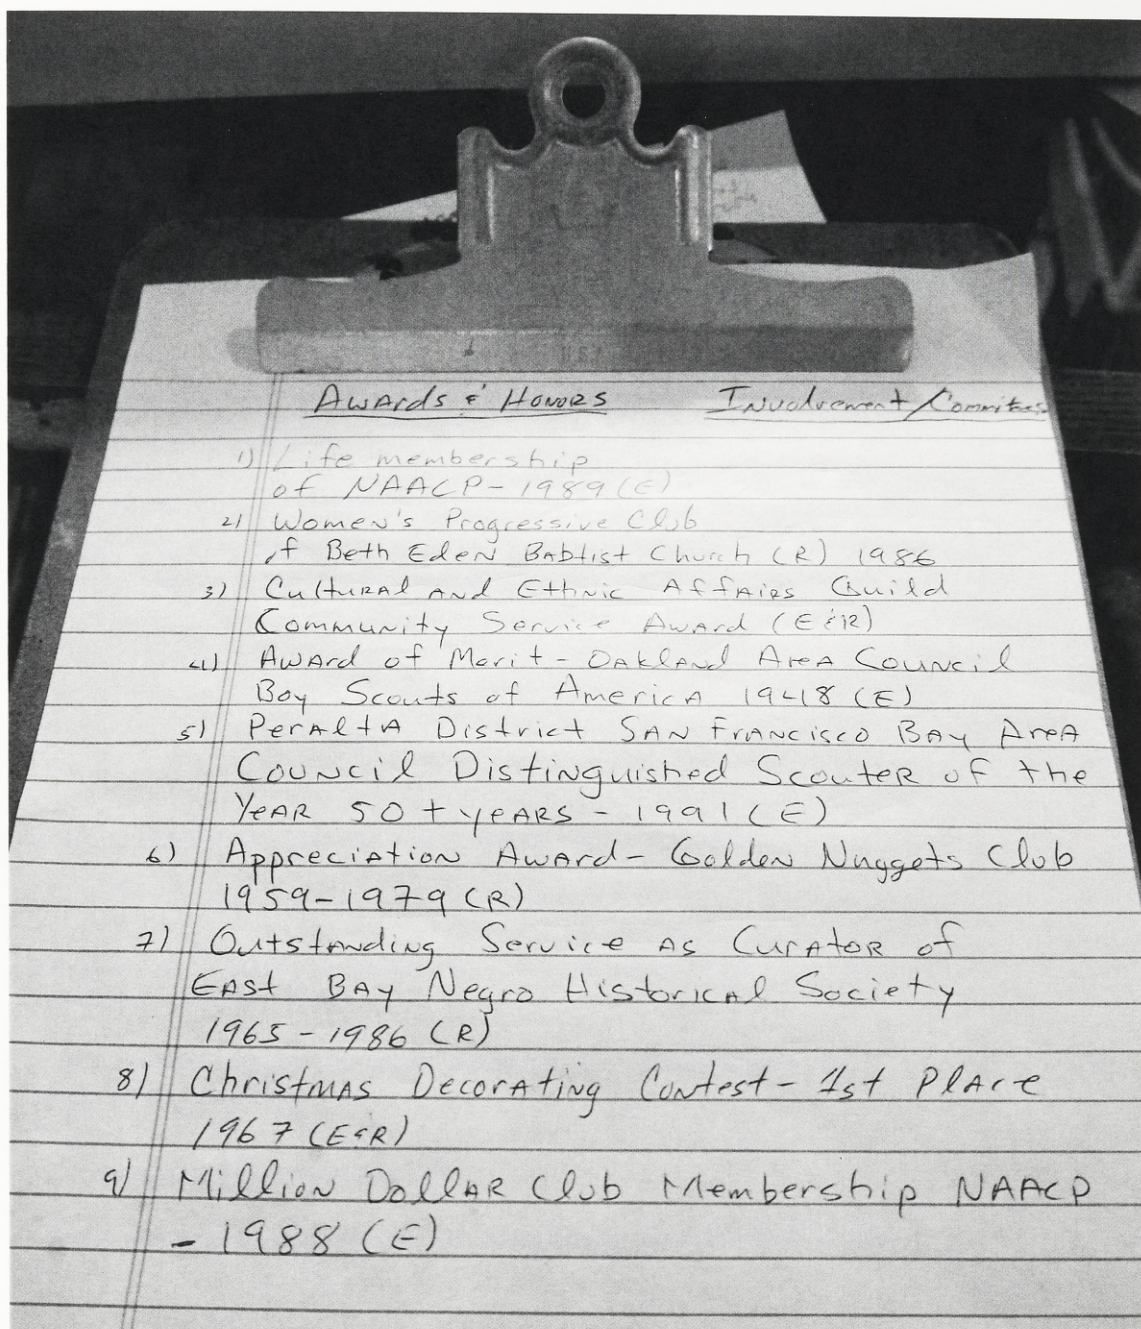 Awards & Honors Involvement/Committees
1) Life membership
of NAACP - 1989 (E)
2) Women's Progressive Club
of Beth Eden Babtist Church (R) 1986
3) Cultural and Ethnic Affairs Guild
Community Service Award (E & R)
4) Award of Merit - Oakland Area Council
Boy Scouts of America 1948 (E)
5) Peralta District San Francisco Bay Area
Council Distinguished Scouter of the
Year 50 + years - 1991 (E)
6) Appreciation Award - Golden Nuggets Club
1959-1979 (R)
7) Outstanding Service as Curator of
East Bay Negro Historical Society
1965 - 1986 (R)
8) Christmas Decorating Contest - 1st Place
1967 (E & R)
9) Million Dollar Club Membership NAACP
- 1988 (E)